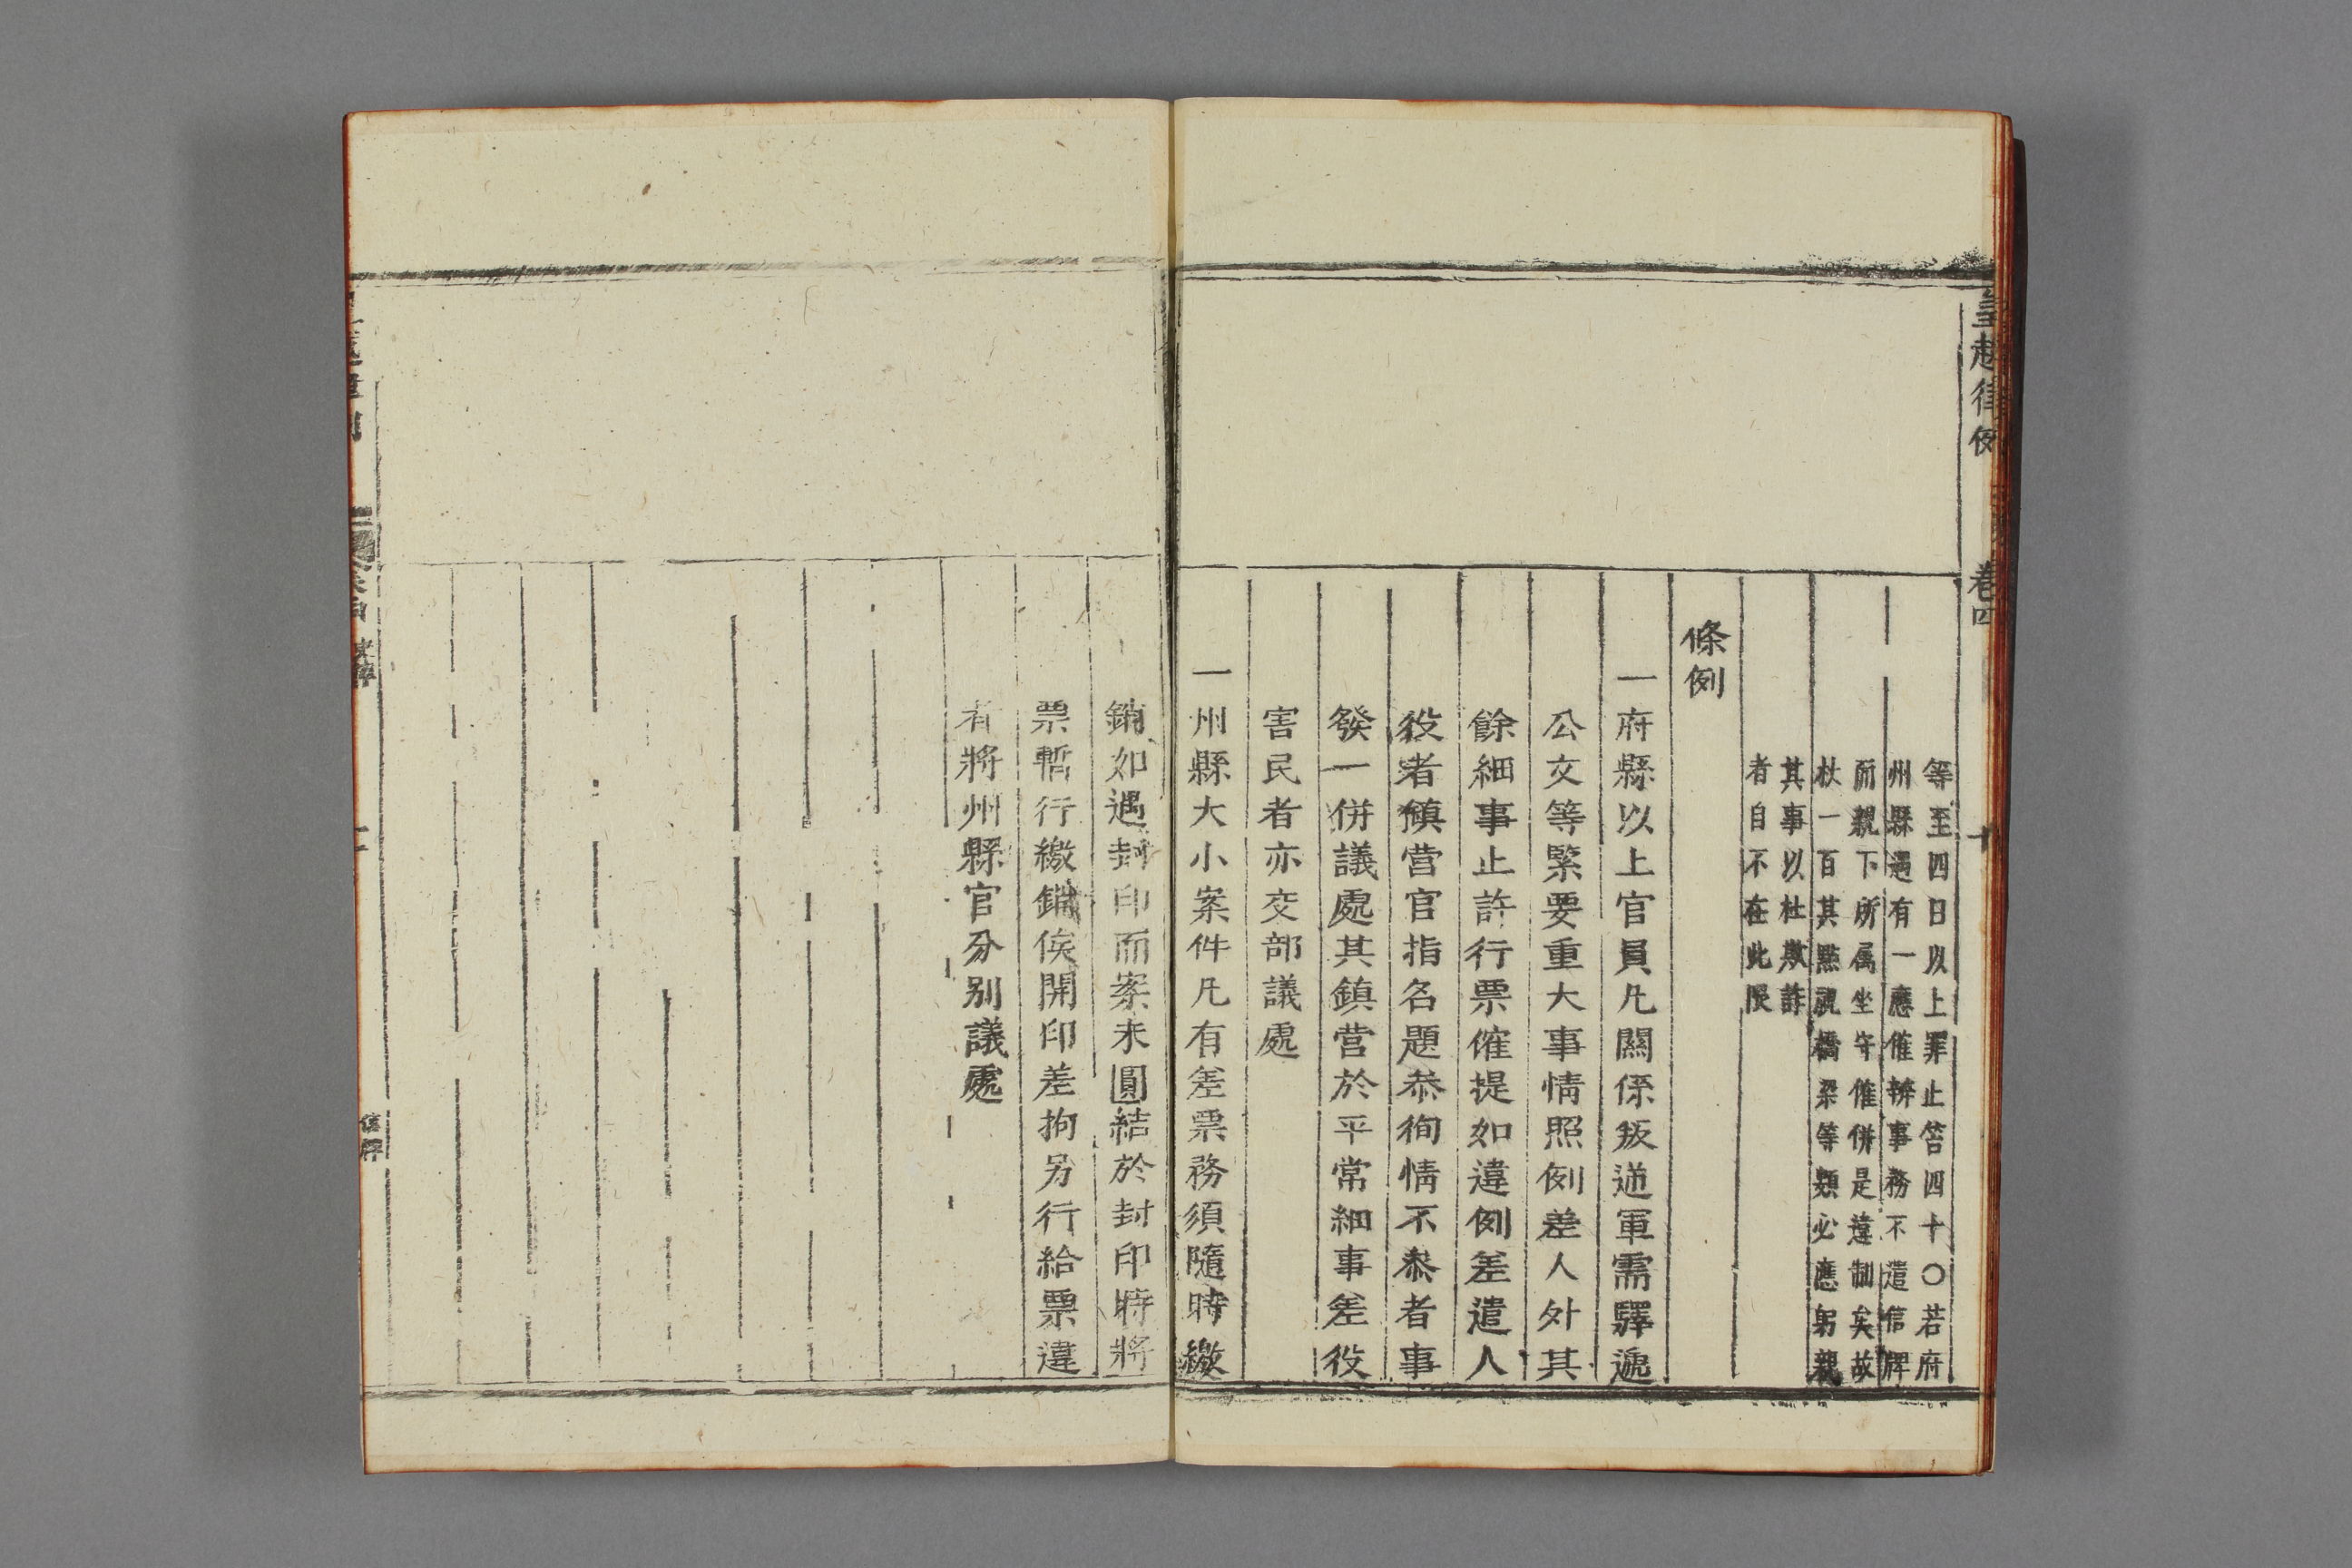 皇越律例
卷四
十
等至四日以上罪止笞四十〇若府
州縣遇有一應催辦事務不遣信牌
而親下所属坐守催併是違制矣故
杖一百其點視橋梁等類必應躬親
其事以杜欺詐
者自不在此限
條例
一府縣以上官員凡關係叛逆軍需驛遞
公文等緊要重大事情照例差人外其
餘細事止許行票催提如違例差遣人
役者鎮营官指名題叅徇情不叅者事
發一併議處其鎮营於平常細事差役
害民者亦交部議處
一州縣大小案件凡有差票務須隨時繳
銷如遇封印而案未圓結於封印時將
票暫行繳銷俟開印差拘另行給票違
者將州縣官分别議處
信牌